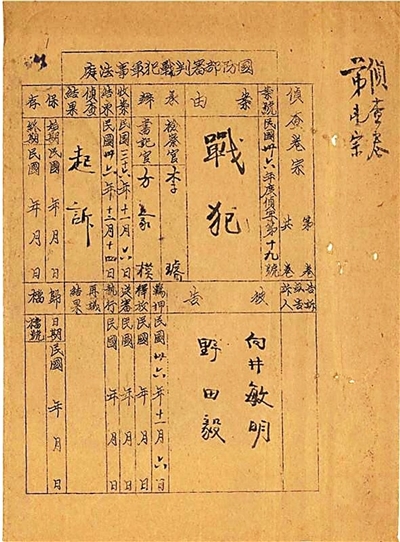 偵查卷
第 宗
國防部審判戰犯軍事法庭
偵查卷宗 第 卷 共 卷
案號 民國卅六年度偵字第十九號
案由
戰犯
承辦
檢察官 李璿
書記官 方象樸
收案 民國三十六年十一月六日
結果 民國卅六年十二月十四日
偵查結果
起訴
保存
始期 民國 年 月 日
終期 民國 年 月 日
告訴人
被告
向井敏明
野田毅
羈押 民國卅六年十一月六日
釋放 民國 年 月 日
送審 民國 年 月 日
執行 民國 年 月 日
再議結果
歸檔
日期 民國 年 月 日
檔號